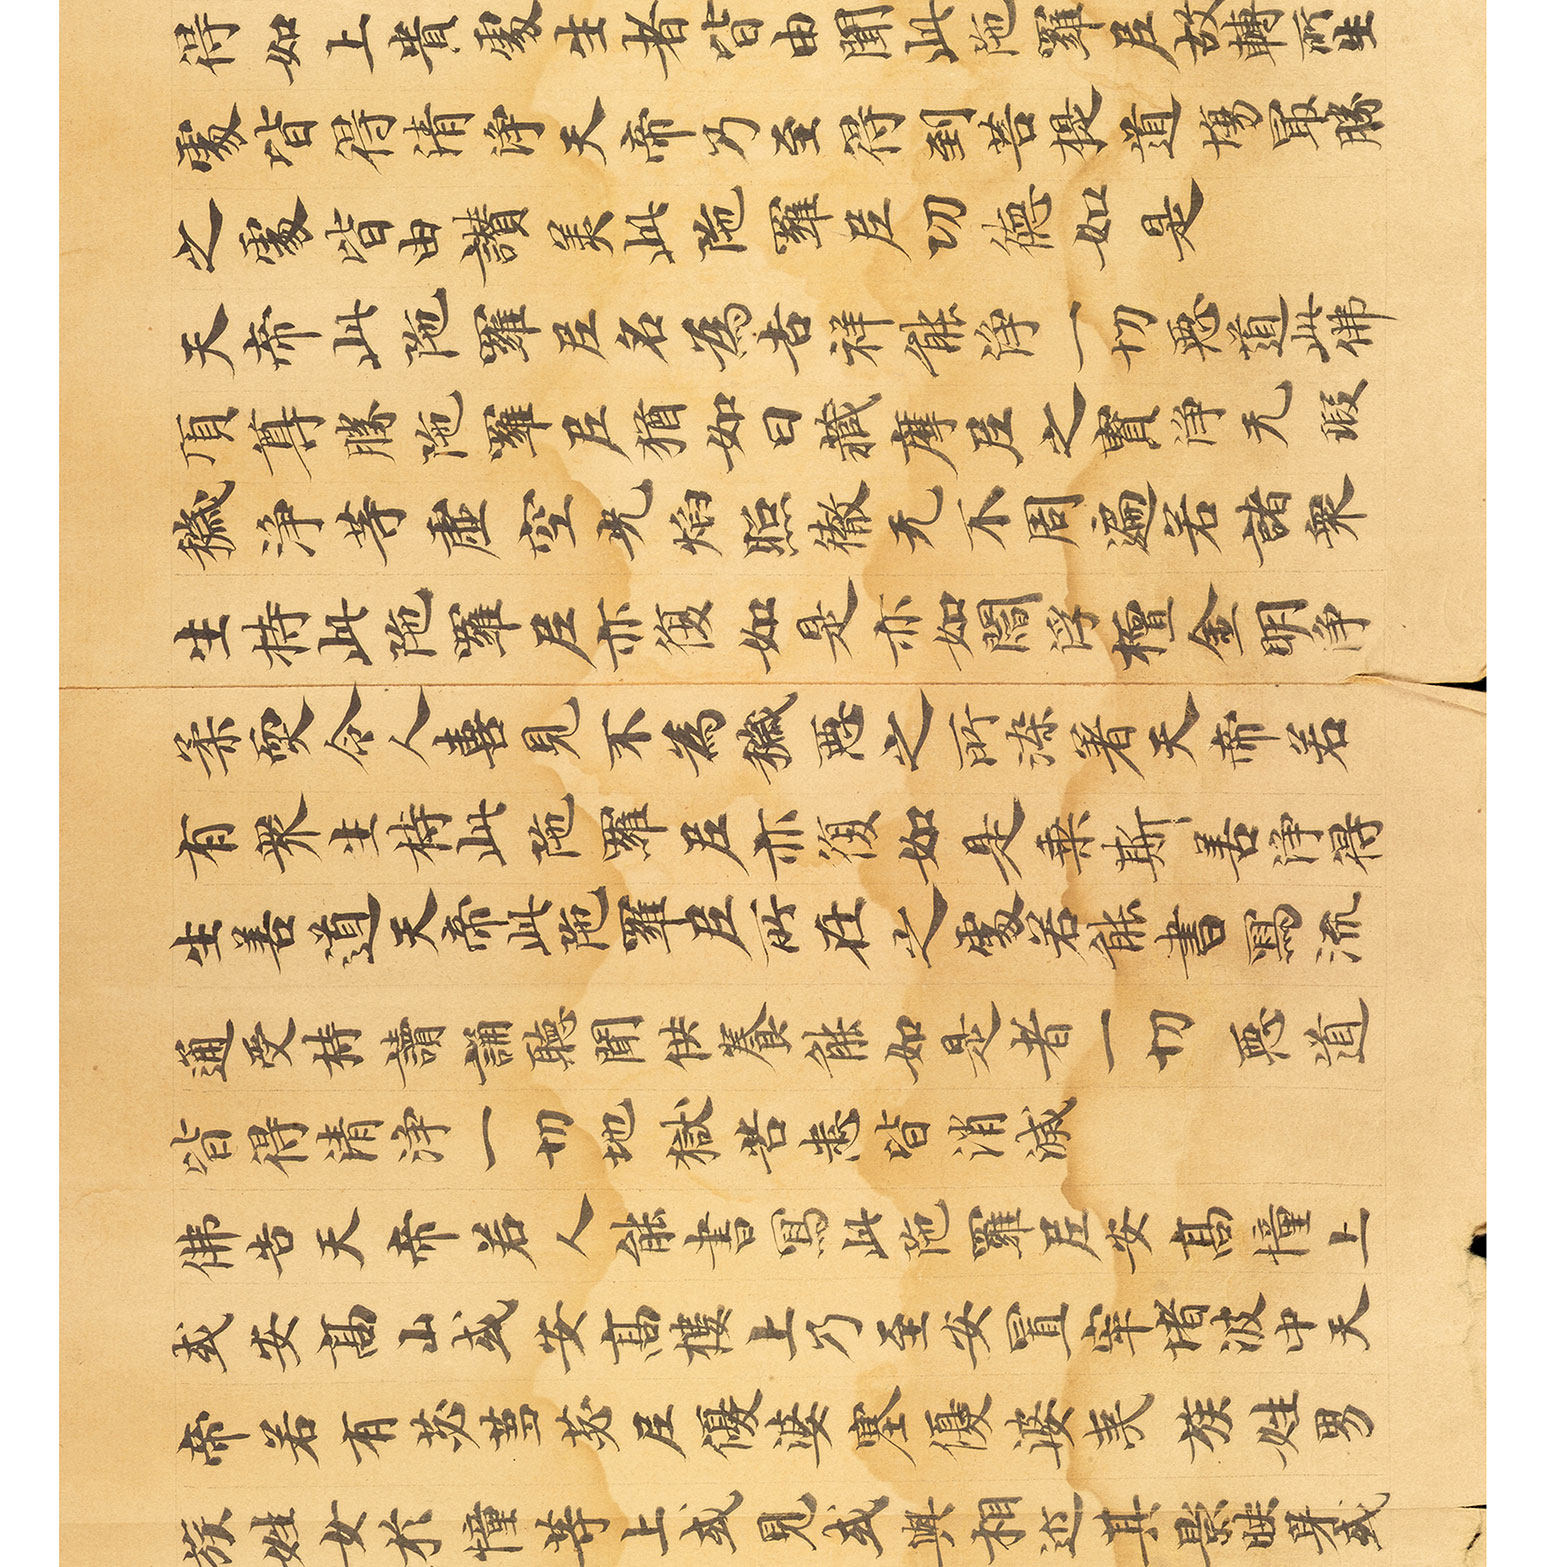 得如上貴處生者皆由聞此陁羅尼故轉所生
處皆得清淨天帝乃至得到菩提道場㝡勝
之處皆由讚美此陁羅尼功德如是
天帝此陁羅尼名為吉祥能淨一切惡道此佛
頂尊勝陁羅尼猶如日藏摩尼之寶淨无瑕
穢淨等虛空光焰照徹无不周遍若諸衆
生持此陁羅尼亦復如是亦如閻浮檀金明淨
柔耎令人喜見不為穢惡之所染著天帝若
有衆生持此陁羅尼亦復如是乗斯善淨得
生善道天帝此陁羅尼所在之處若能書寫流
通受持讀誦聽聞供養能如是者一切惡道
皆得清淨一切地獄苦悉皆消滅
佛告天帝若人能書寫此陁羅尼安髙幢上
或安髙山或安髙樓上乃至安置窣堵波中天
帝若有苾蒭苾尼優婆塞優婆夷族姓男
族姓女於幢等上或見或與相近其影映身或